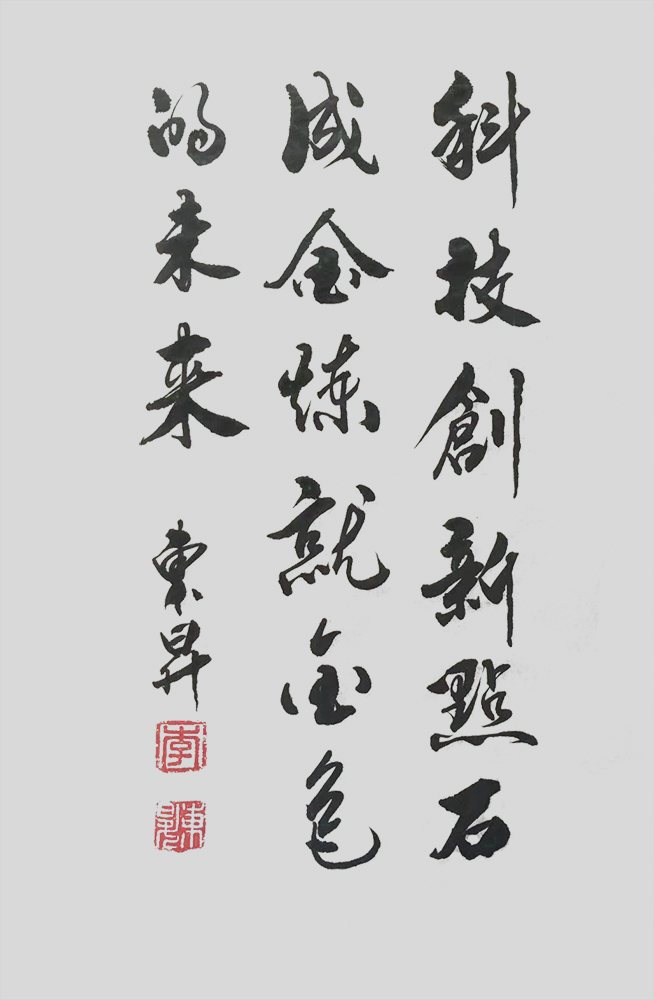 科技創新點石
成金煉就金色
的未来
東昇
李
東昇